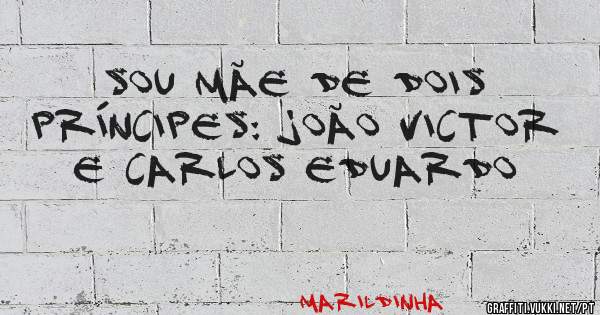 SOU MÃE DE DOIS
PRÍNCIPES: JOÃO VICTOR
E CARLOS EDUARDO
MARILDINHA
GRAFFITI.VUKKI.NET/PT